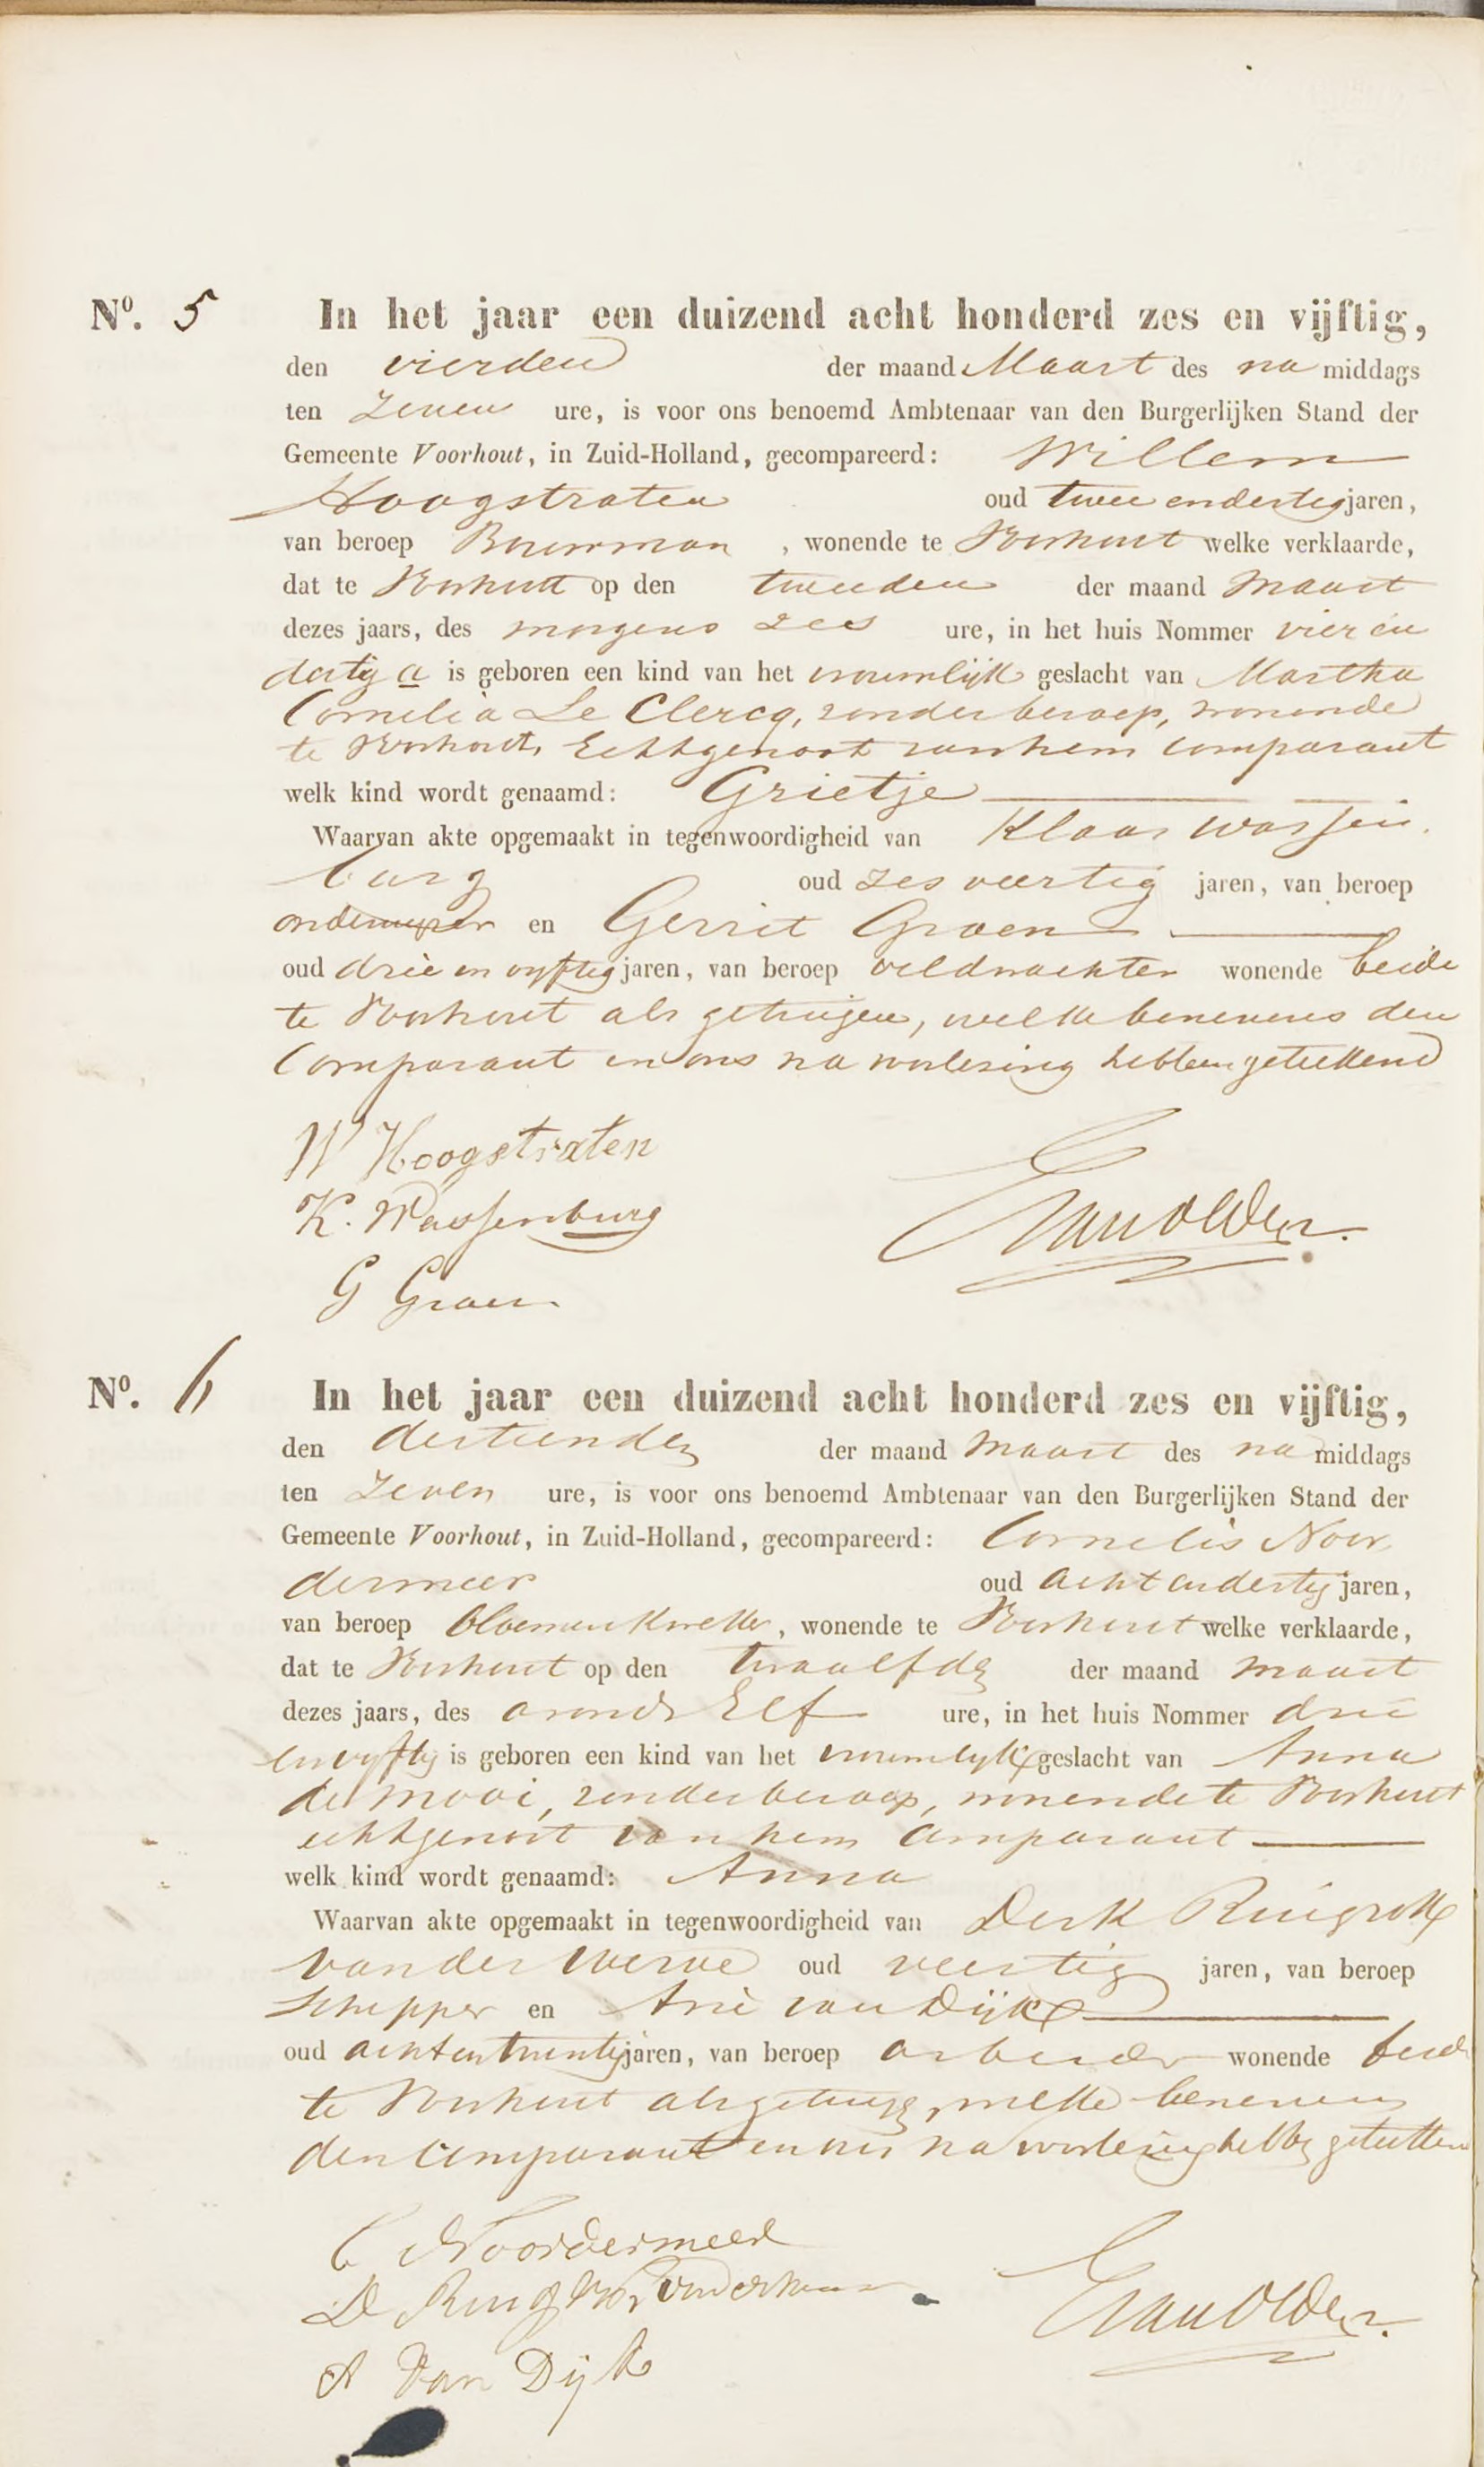 Nº. 5 In het jaar een duizend acht honderd zes en vijftig,
den vierden der maand Maart des na middags
ten Zeven ure, is voor ons benoemd Ambtenaar van den Burgerlijken Stand der
Gemeente Voorhout, in Zuid-Holland, gecompareerd: Willem
Hoogstraten oud twee endertig jaren,
van beroep Bouwman, wonende te Voorhout welke verklaarde,
dat te Voorhout op den tweeden der maand Maart
dezes jaars, des morgens zes ure, in het huis Nommer vier en
dertig a is geboren een kind van het vrouwlijk geslacht van Martha
Cornelia Le Clercq, zonder beroep, wonende
te Voorhout, Echtgenoot van hem Comparant
welk kind wordt genaamd: Grietje
Waarvan akte opgemaakt in tegenwoordigheid van Klaas Wassen
burg oud zes veertig jaren, van beroep
en Gerrit Groen
oud drie en vyftig jaren, van beroep veldwachter wonende beide
te Voorhout als getuigen, welke benevens den
Comparant en ons na voorlezing hebben geteekend
W Hoogstraten
K. Wassenburg
G Groen
Nº. 6 In het jaar een duizend acht honderd zes en vijftig,
den dertienden der maand Maart des na middags
ten Zeven ure, is voor ons benoemd Ambtenaar van den Burgerlijken Stand der
Gemeente Voorhout, in Zuid-Holland, gecompareerd: Cornelis Noor
dermeer oud acht endertig jaren,
van beroep bloemenkweker, wonende te Voorhout welke verklaarde,
dat te Voorhout op den twaalfden der maand Maart
dezes jaars, des avonds Elf ure, in het huis Nommer drie
envyftig is geboren een kind van het vrouwelyk geslacht van Anna
de Mooi, zonder beroep, wonende te Voorhout
echtgenoot van hem Comparant
welk kind wordt genaamd: Anna
Waarvan akte opgemaakt in tegenwoordigheid van Derk Ruigrok
van der Werve oud veertig jaren, van beroep
Schipper en Arie van Dijk
oud achtentwintig jaren, van beroep arbeider wonende beide
te Voorhout als getuigen, welke benevens
den Comparant en ons na voorlezing hebben geteekend
C Noordermeer
D Ruigrok van der
A Van Dijk